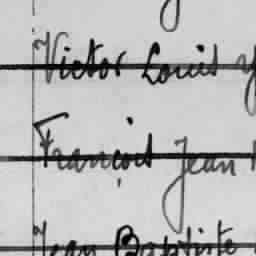 Victor Louis
François Jean
Jean Baptiste